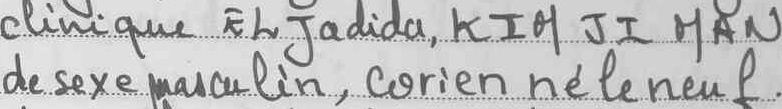 clinique EL Jadida, KIM JI MAN
de sexe masculin, Corien né le neuf